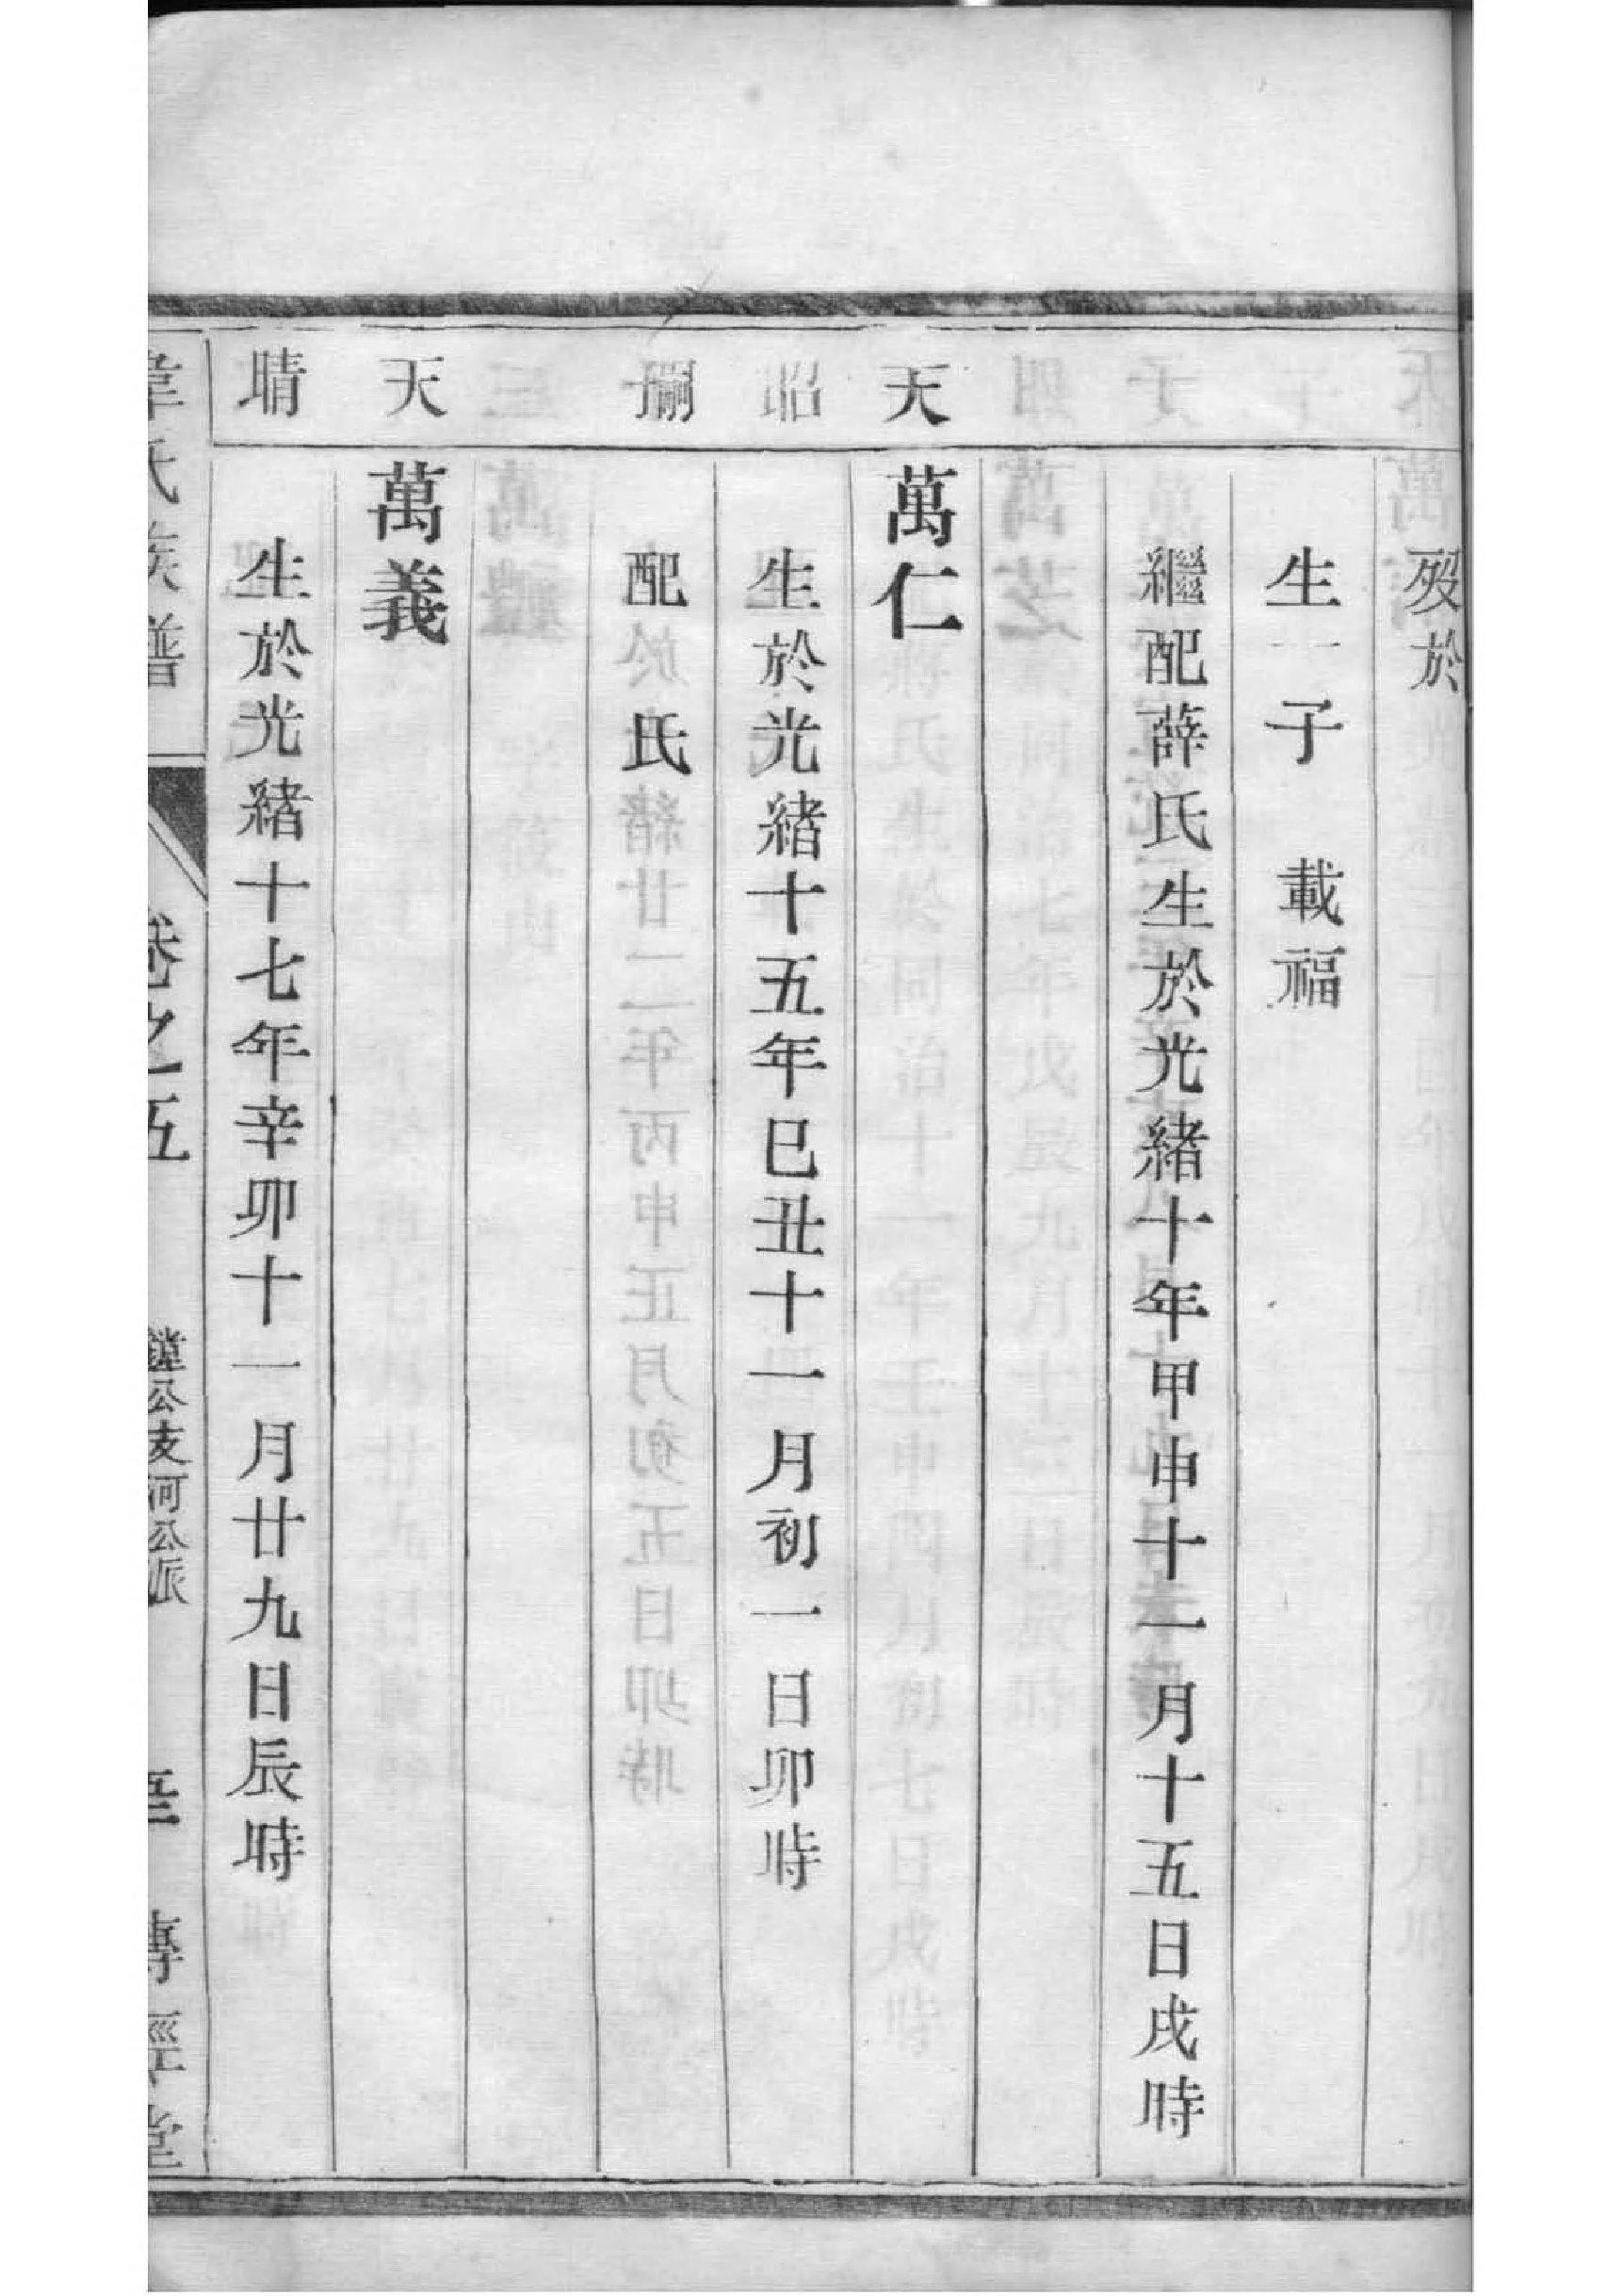 歿於
生一子 載福
繼配薛氏生於光緒十年甲申十一月十五日戌時
天 萬仁
昭 生於光緒十五年巳丑十一月初一日卯時
嗣 配 氏
天 萬義
晴 生於光緒十七年辛卯十一月廿九日辰時
韋氏族譜 卷之五 公支河公派 傳經堂